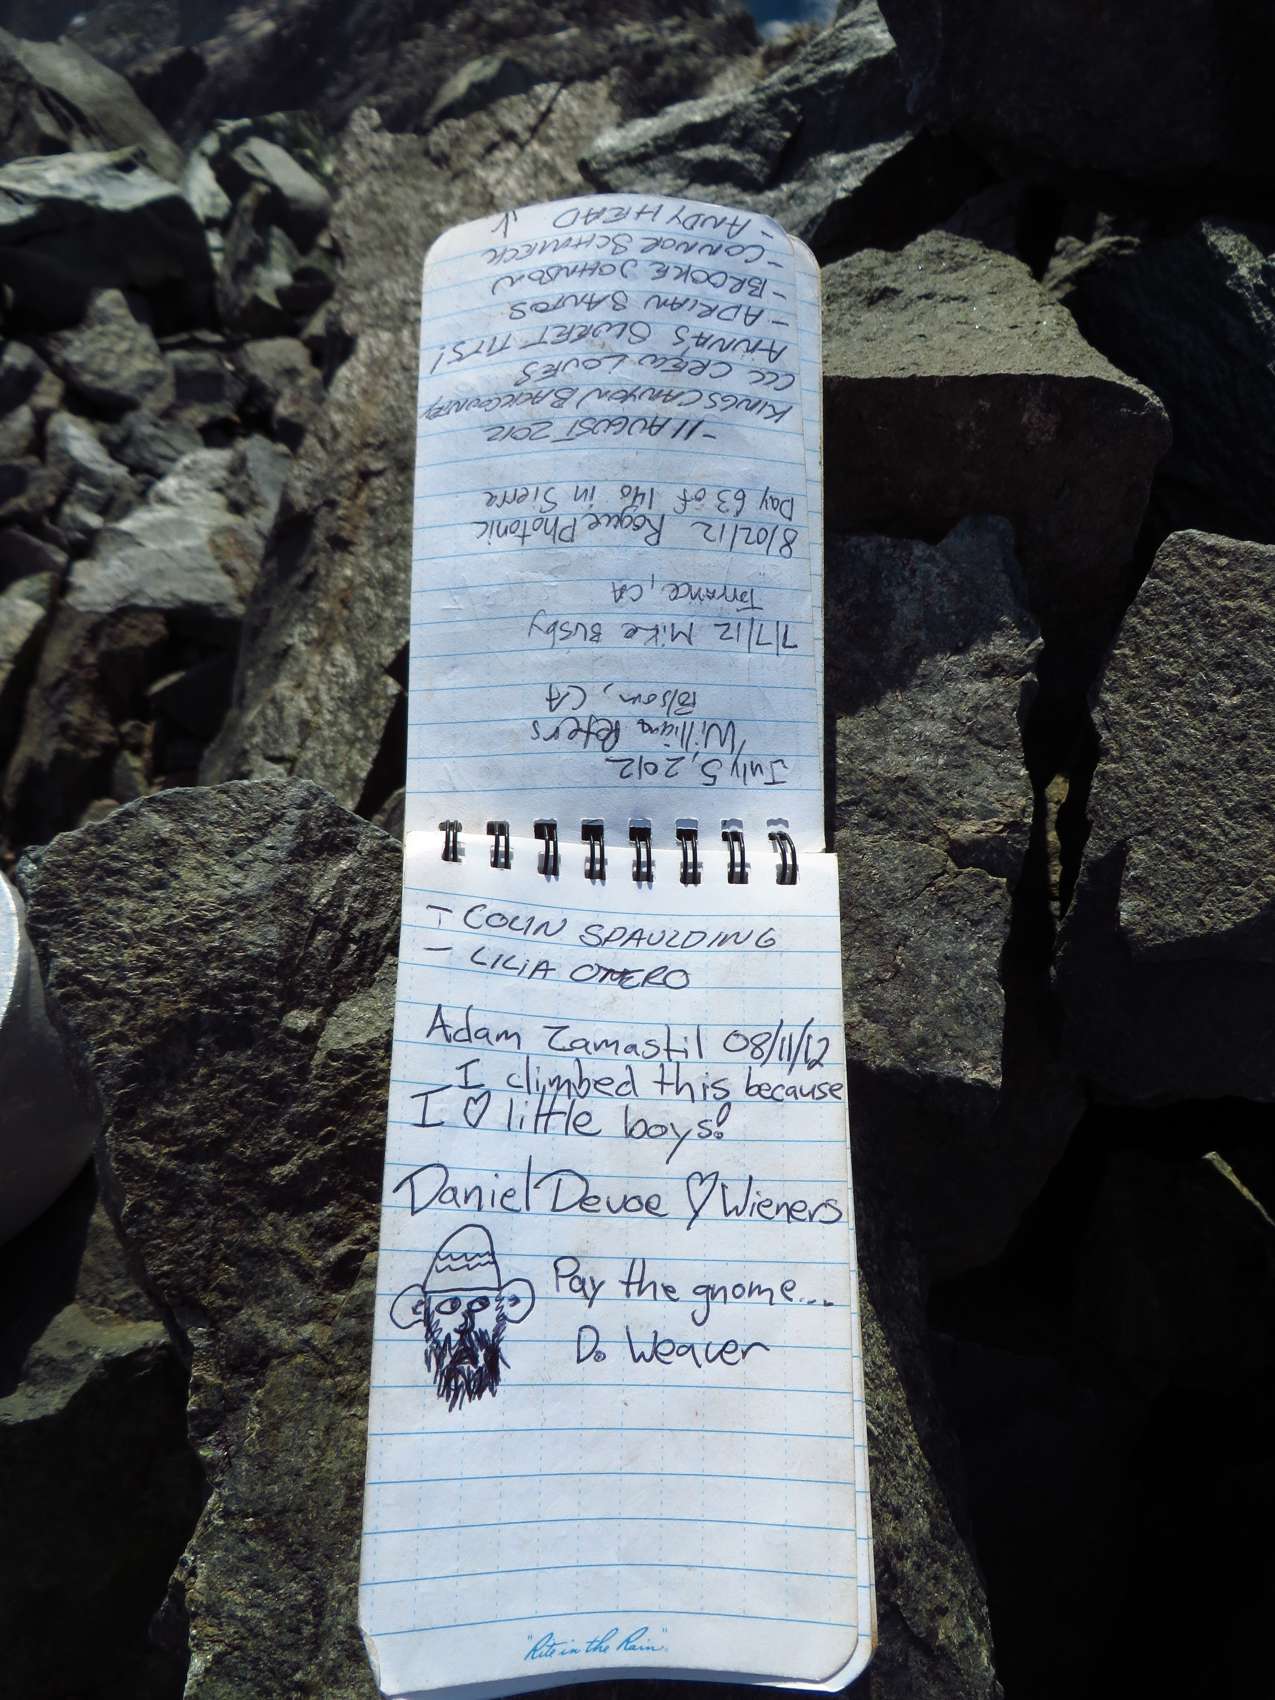 July 5, 2012
William Peters
Folsom, CA
7/7/12 Mike Busby
Torrance, CA
8/02/12 Rogue Photonic
Day 63 of 140 in Sierra
- 11 AUGUST 2012
KINGS CANYON BACKCOUNTRY
CCC CREW LOVES
ANNA'S SWEET TITS!
- ADRIAN SANTOS
- BROOKE JOHNSON
- CONNOR
- ANDY HEAD ↓
- COLIN SPAULDING
- LILIA OTERO
Adam Zamastil 08/11/12
I climbed this because
I ♡ little boys!
Daniel Devoe ♡ Wieners
Pay the gnome...
D. Weaver
"Rite in the Rain"